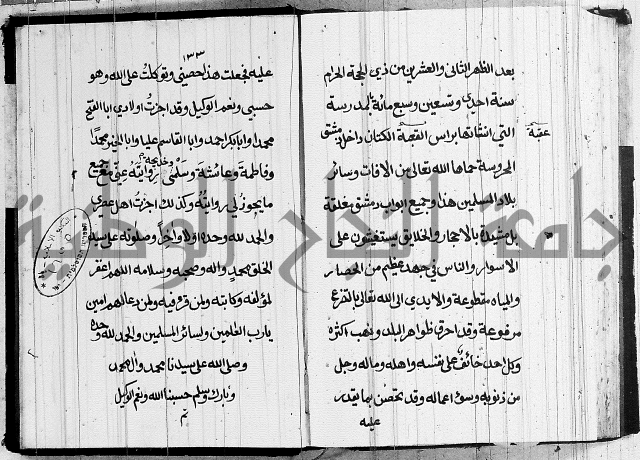 بعد الظهر الثانى والعشرين من ذي الحجة الحرام
سنة احدى وتسعين وسبع مائة بالمدرسة
التي انشاتها براس القبة الكتان داخل دمشق
عقبة
المحروسة حماها الله تعالى من الافات وسائر
بلاد المسلين هذا وجميع ابواب دمشق مغلقة
بل مشيدة بالاحجار والخلايق يستغيثون على
الاسوار والناس في جهد عظيم من الحصار
والمياه مقطوعة والايدي الى الله تعالى بالتضرع
مرفوعة وقد احرق ظواهر البلد ونهب اكثره
وكل احد خائف على نفسه واهله وماله وجل
من ذنوبه وسوء اعماله وقد تحصن بما يقدر
عليه
١٣٣
عليه فجعلت هذا حصيني وتوكلت على الله وهو
حسبي ونعم الوكيل وقد اجزت اولادي ابا الفتح
محمدا وابا بكر احمد وابا القاسم عليا وابا الخير محمدا
وفاطمة وعائشة وسلمى وخديجة روايته عني مع جميع
ما يجوز لي روايته وكذلك اجزت اهل عصري
والحمد لله وحده اولا واخرا وصلوته على سيد
الخلق محمد واله وصحبه وسلامه اللهم اغفر
لمؤلفه وكاتبه ولمن قرء فيه ولمن دعا لهم امين
يارب العلمين ولسائر المسلين والحمد لله وحده
وصلى الله على سيدنا محمد وال محمد
وبارك وسلم حسبنا الله ونعم الوكيل
تم
جامعة النجاح الوطنية